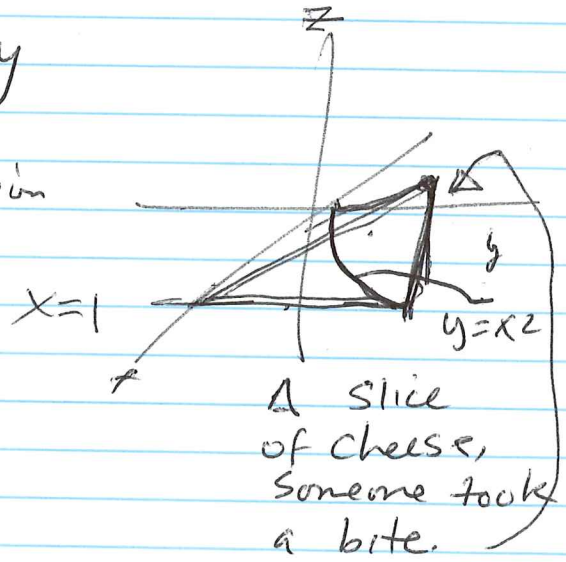 Z
y
ion
y
x=1
y=x2
x
A slice
of cheese,
someone took
a bite.